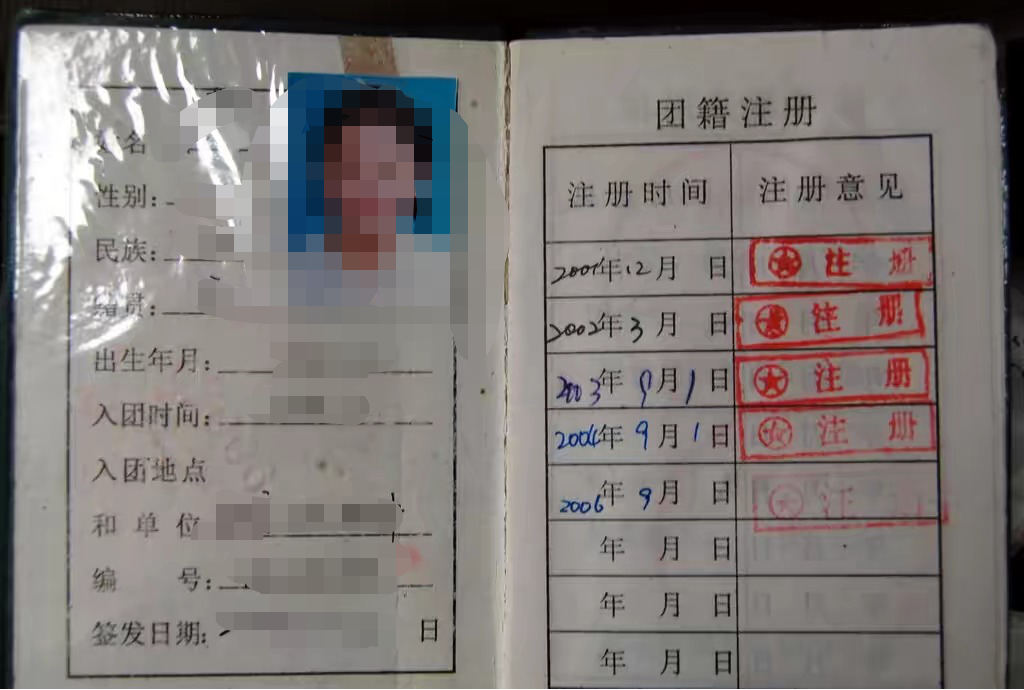 姓名
性别:
民族:
籍贯:
出生年月:
入团时间:
入团地点
和单位
编 号:
签发日期: 日
团籍注册
注册时间 注册意见
2001年12月 日 注册
2002年3月 日 注册
2003年9月1日 注册
年9月1日 注册
2006年9月 日 注
年 月 日
年 月 日
年 月 日